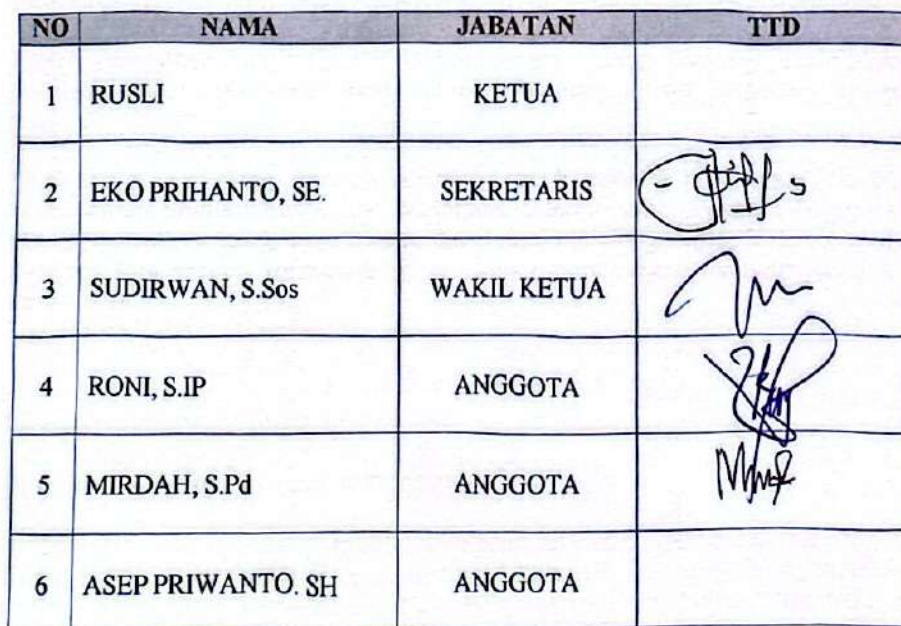 NO NAMA JABATAN TTD
1 RUSLI KETUA
2 EKO PRIHANTO, SE. SEKRETARIS
3 SUDIRWAN, S.Sos WAKIL KETUA
4 RONI, S.IP ANGGOTA
5 MIRDAH, S.Pd ANGGOTA
6 ASEP PRIWANTO. SH ANGGOTA